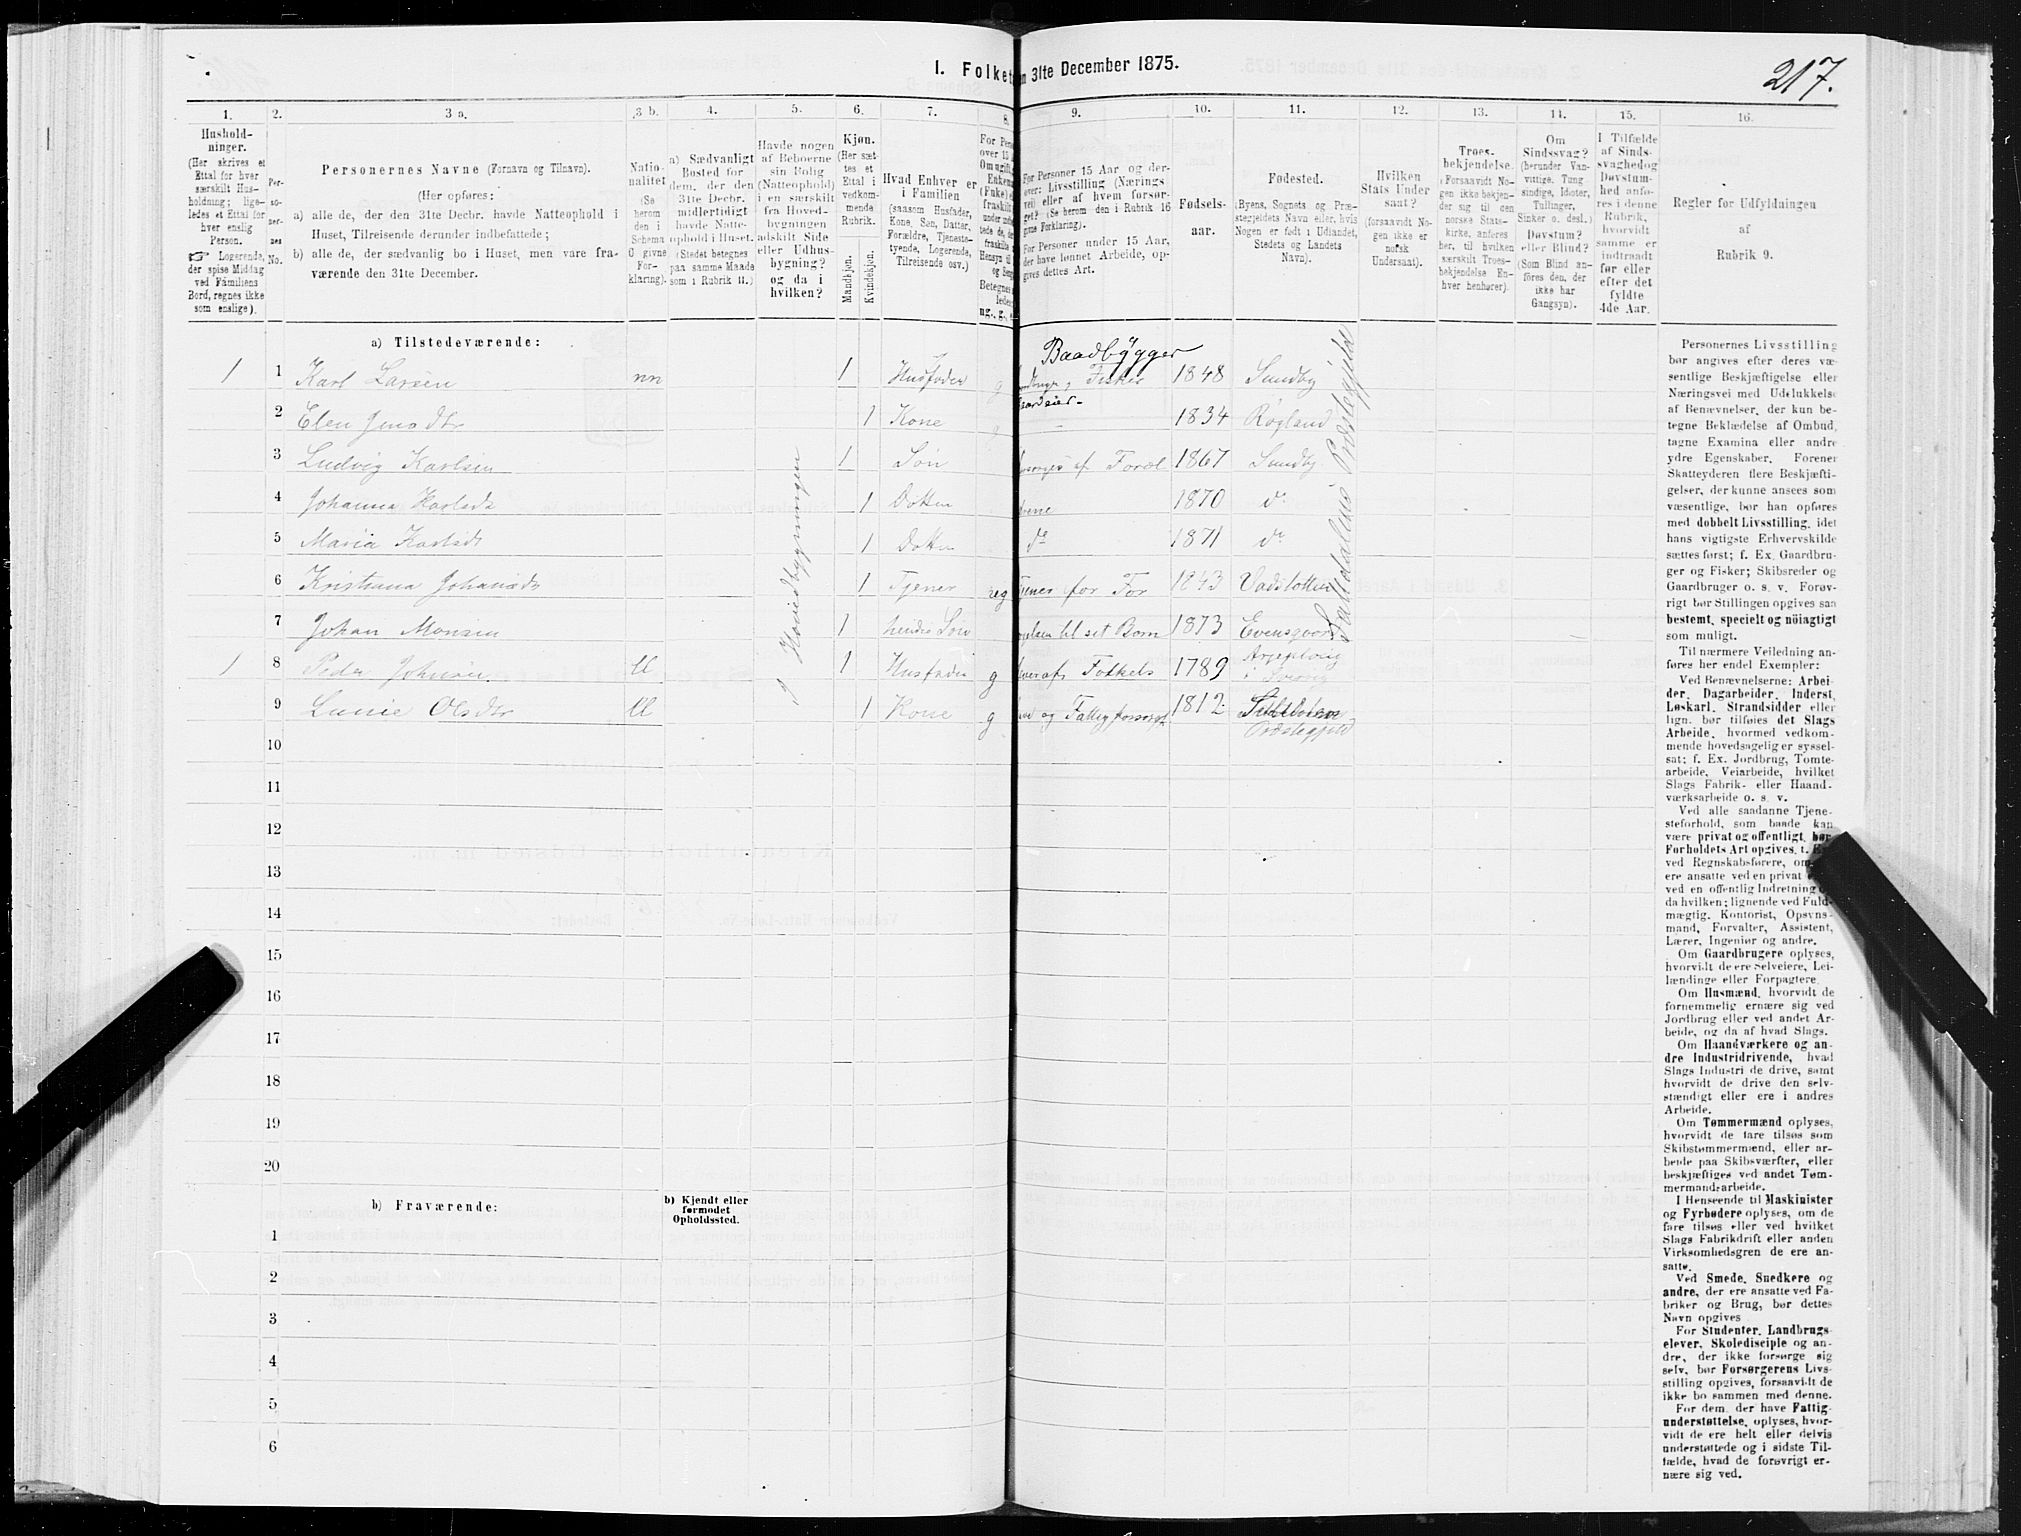 I. Folket
en 31te December 1875.
217.
1.
Hushold-
ninger.
(Her skrives et
Ettal for hver
særskilt Hus-
holdning; lige-
ledes et Ettal for
hver enslig
Person.
☞ Logerende,
der spise Middag
ved Familiens
Bord, regnes ikke
som enslige).
2.
Per-
so-
ner-
nes
No.
3 a.
Personernes Navne (Fornavn og Tilnavn).
(Her opføres:
a) alle de, der den 31te Decbr. havde Natteophold i
Huset, Tilreisende derunder indbefattede;
b) alle de, der sædvanlig bo i Huset, men vare fra-
værende den 31te December.
3 b.
Natio-
nalitet
(Se
herom
den i
Schema
O givne
For-
klaring).
4.
a) Sædvanligt
Bosted for
dem, der den
31te Decbr.
midlertidigt
havde Natte-
ophold i Huset.
(Stedet betegnes
paa samme Maade
som i Rubrik 11.)
5.
Havde nogen
af Beboerne
sin Bolig
(Natteophold)
i en særskilt
fra Hoved-
bygningen
adskilt Side
eller Udhus-
bygning?
og da i
hvilken?
6.
Kjøn.
(Her sæt-
tes et
Ettal i
vedkom-
mende
Rubrik.
Mandkjøn.
Kvindekjøn.
7.
Hvad Enhver er
i Familien
(saasom Husfader,
Kone, Søn, Datter,
Forældre, Tjeneste-
tyende, Logerende,
Tilreisende osv.)
8.
For Pers
over 15 a
Om ugift,
Enkem
(Enke) e
fraskilt
Betegnes
ug., g., e
9.
For Personer 15 Aar og der-
over: Livsstilling (Nærings
vei) eller af hvem forsør-
get? (Se herom den i Rubrik 16
givne Forklaring).
For Personer under 15 Aar,
der have lønnet Arbeide, op-
gives dettes Art.
10.
Fødsels-
aar.
11.
Fødested.
(Byens, Sognets og Præ-
stegjeldets Navn eller, hvis
Nogen er født i Udlandet,
Stedets og Landets
Navn).
12.
Hvilken
Stats Under
saat?
(forsaavidt No-
gen ikke er
norsk
Undersaat).
13.
Troes-
bekjendelse.
(Forsaavidt No-
gen ikke bekjen-
der sig til den
norske Stats-
kirke, anføres
her, til hvilken
særskilt Troes-
bekjendelse En-
hver henhører).
14.
Om
Sindssvag?
(herunder Van-
vittige, Tung
sindige, Idioter,
Tullinger,
Sinker o. desl.)
Døvstum?
eller Blind?
(Som Blind an-
føres den, der
ikke har
Gangsyn).
15.
I Tilfælde
af Sinds-
svaghed og
Døvstum-
hed anfø-
res i denne
Rubrik,
hvorvidt
samme er
indtraadt
før eller
efter det
fyldte
4de Aar.
16.
Regler for Udfyldningen
af
Rubrik 9.
a) Tilstedeværende:
Baadbygger
1 1 Karl Larsen nn 1 Husfader g Fisker 1848 Sundby
Gaardeier-
2 1 Kone g - 1834 Røgland
3 Ludvig Karlsen 1 Søn af Foræl 1867 Sundby
4 Johanna Karlsdt 1 Datter 1870 do
5 Maria Karlsdt 1 Datter do 1871 do
6 Kristiana 1 Tjener ug for 1843
7 Johan Monsen 1 hendes Søn til set Barn 1873 Evensgaard
1 8 Peder Johnsen ll 1 Husfader g 1789 Arjeploug
9 Olsdtr ll 1 Kone g og 1812
Præstegjeld
i Hovedbygningen
Saltdalens Præstegjeld
10
11
12
13
14
15
16
17
18
19
20
b) Fraværende:
b) Kjendt eller
formodet
Opholdssted.
1
2
3
4
5
6
Personernes Livsstilling
bør angives efter deres væ-
sentlige Beskjæftigelse eller
Næringsvei med Udelukkelse
af Benævnelser, der kun be-
tegne Beklædelse af Ombud,
tagne Examina eller andre
ydre Egenskaber. Forener
Skatteyderen flere Beskjæfti-
gelser, der kunne ansees som
væsentlige, bør han opføres
med dobbelt Livsstilling, idet
hans vigtigste Erhvervskilde
sættes først; f. Ex. Gaardbru-
ger og Fisker; Skibsreder og
Gaardbruger o. s. v. Forøv-
rigt bør Stillingen opgives saa
bestemt, specielt og nöiagtigt
som muligt.
Til nærmere Veiledning an-
føres her endel Exempler:
Ved Benævnelserne: Arbei-
der, Dagarbeider, Inderst,
Løskarl, Strandsidder eller
lign. bør tilføies det Slags
Arbeide, hvormed vedkom-
mende hovedsagelig er syssel-
sat; f. Ex. Jordbrug, Tomte-
arbeide, Veiarbeide, hvilket
Slags Fabrik- eller Haand-
værksarbeide o. s. v.
Ved alle saadanne Tjene-
steforhold, som baade kan
være privat og offentligt, bør
Forholdets Art opgives, t.
ved Regnskabsførere, om
ere ansatte ved en privat
ved en offentlig Indretning
da hvilken; lignende ved Fuld-
mægtig, Kontorist, Opsyns-
mand, Forvalter, Assistent,
Lærer, Ingeniør og andre.
Om Gaardbrugere oplyses,
hvorvidt de ere Selveiere, Lei-
lændinge eller Forpagtere.
Om Husmænd, hvorvidt de
fornemmelig ernære sig ved
Jordbrug eller ved andet Ar-
beide, og da af hvad Slags.
Om Haandværkere og an-
dre Industridrivende, hvad
Slags Industri de drive, samt
hvorvidt de drive den selv-
stændigt eller ere i andres
Arbeide.
Om Tømmermænd oplyses,
hvorvidt de fare tilsøs som
Skibstømmermænd, eller ar-
beide paa Skibsværfter, eller
beskjæftiges ved andet Tøm-
mermandsarbeide.
I Henseende til Maskinister
og Fyrbødere oplyses, om de
fare tilsøs eller ved hvilket
Slags Fabrikdrift eller anden
Virksomhedsgren de ere an-
satte.
Ved Smede, Snedkere og
andre, der ere ansatte ved Fa-
briker og Brug, bør dettes
Navn opgives
For Studenter, Landbrugs-
elever, Skoledisciple og an-
dre, der ikke forsørge sig
selv, bør Forsørgerens Livs-
stilling opgives, forsaavidt de
ikke bo sammen med denne.
For dem, der have Fattig-
understøttelse, oplyses, hvor-
vidt de ere helt eller delvis
understøttede og i sidste Til-
fælde, hvad de forøvrigt er-
nære sig ved.